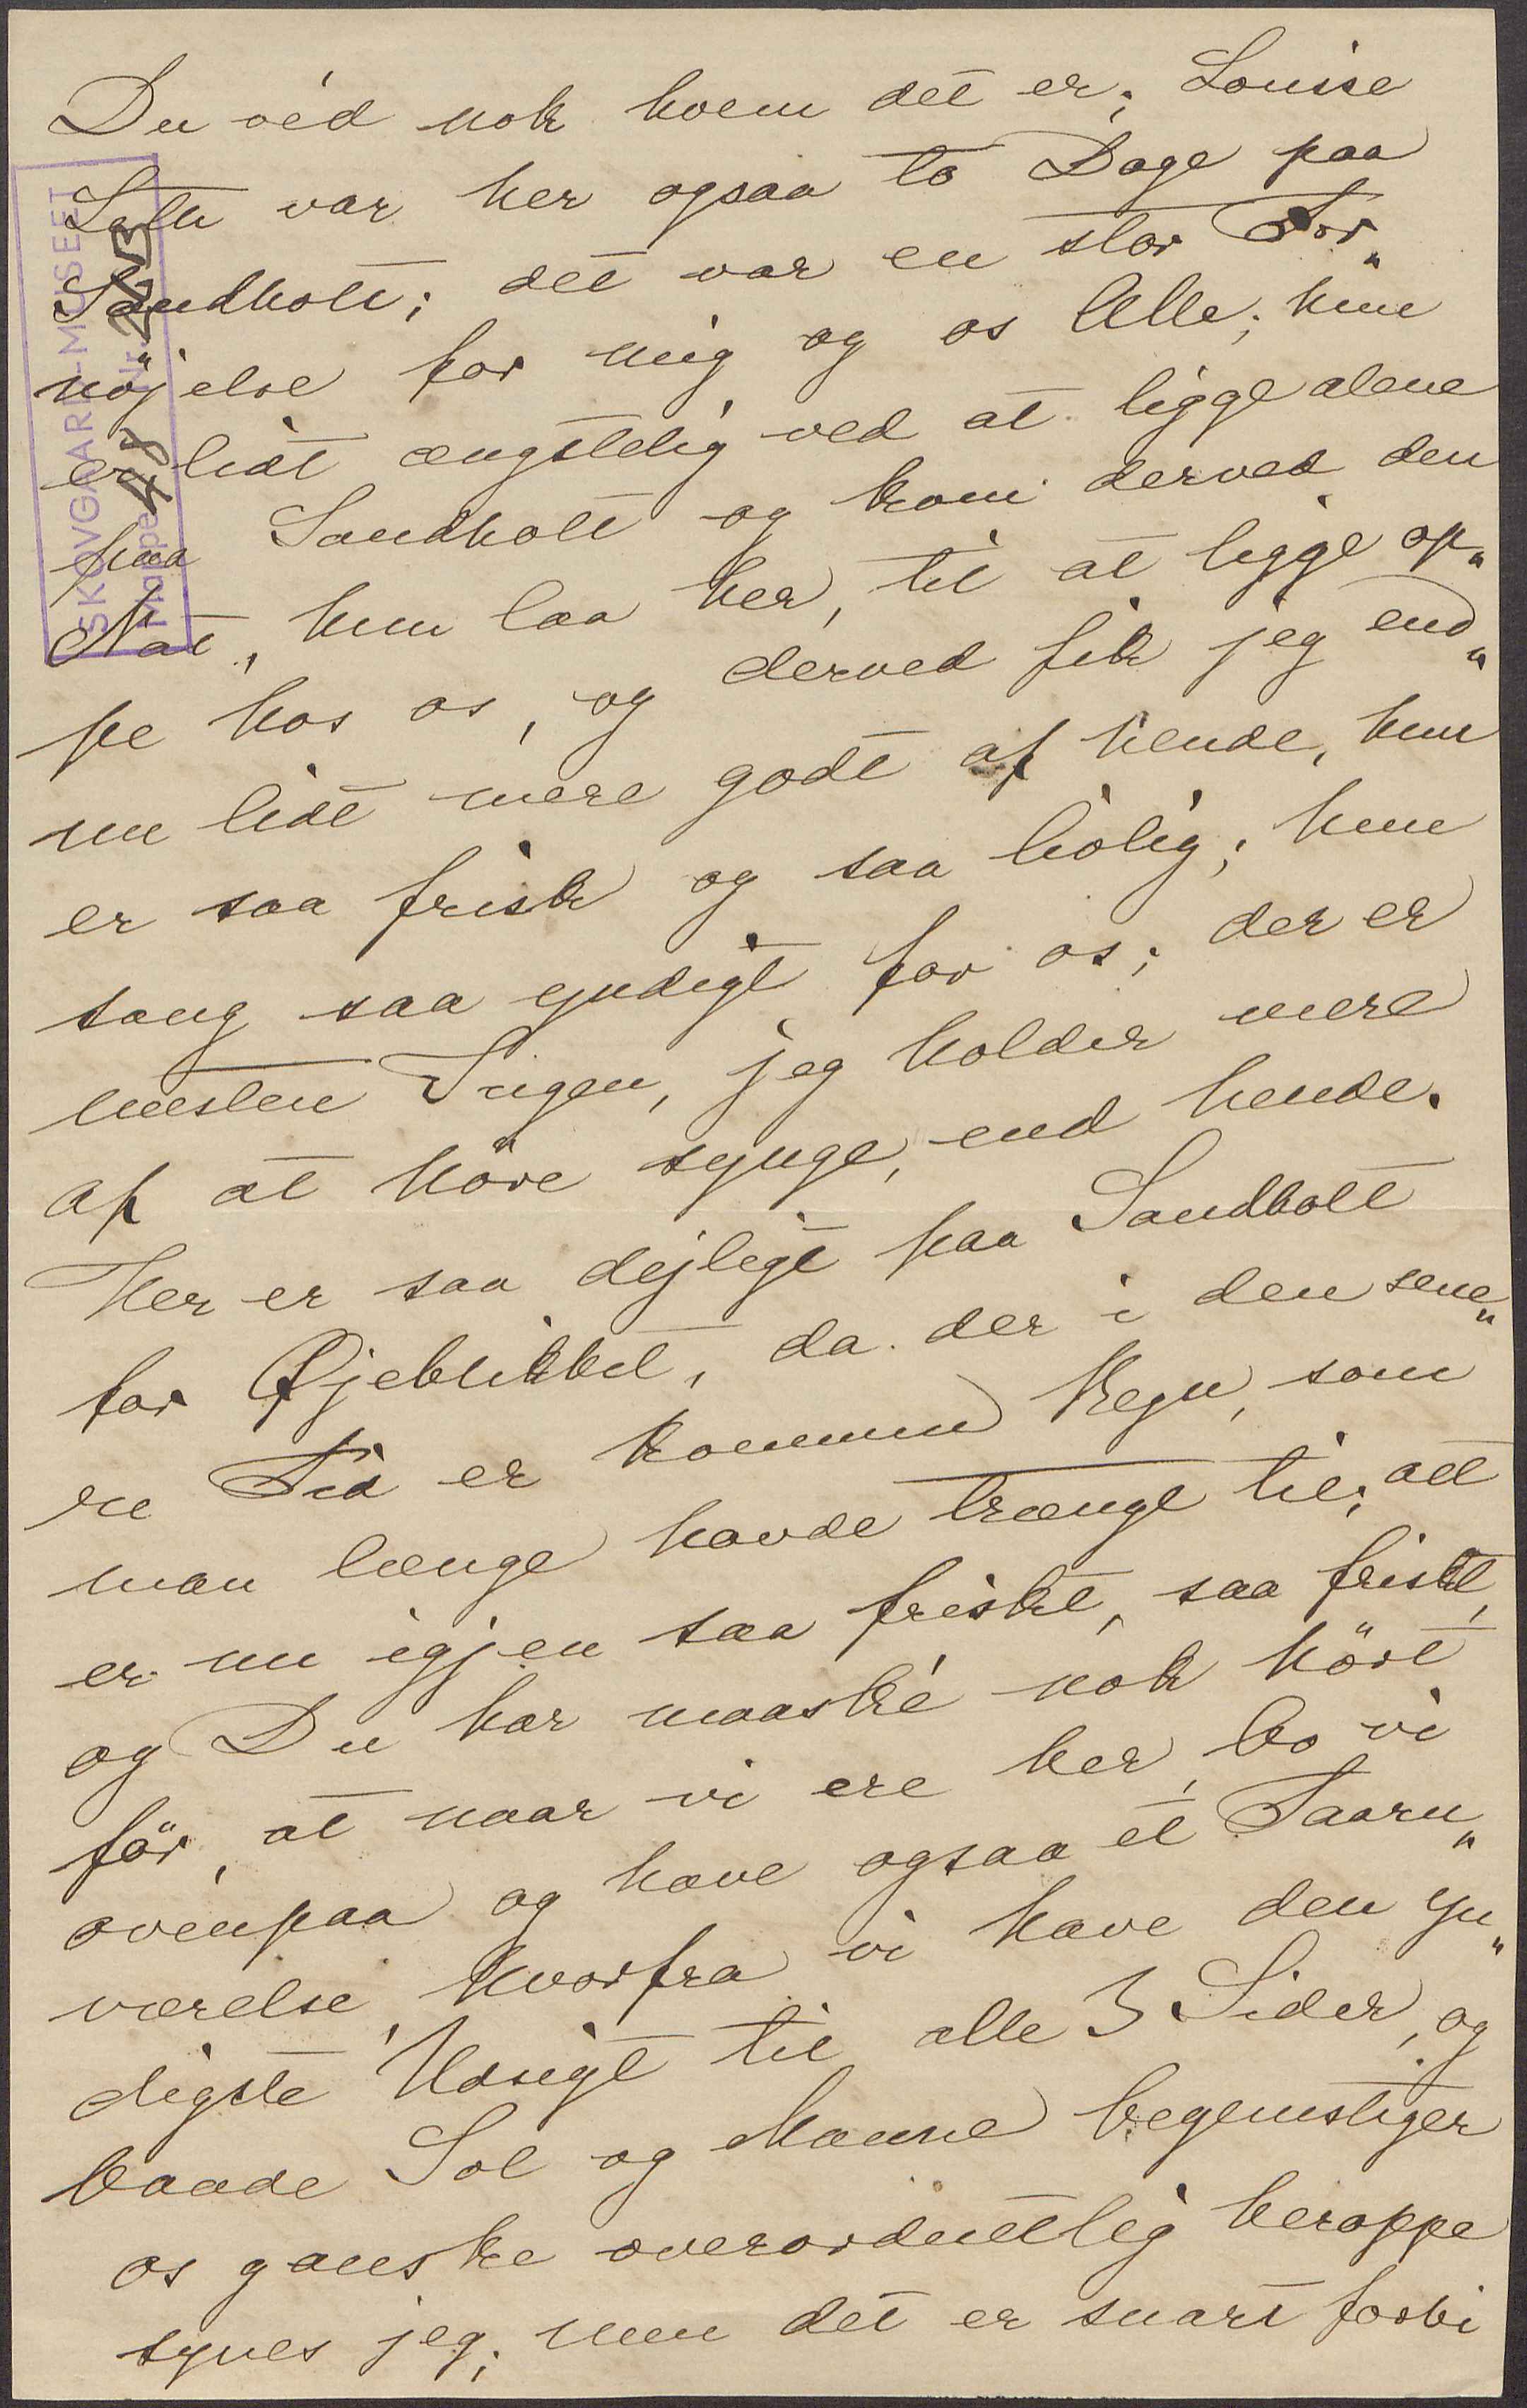 Du véd nok hvem det er; Louise
var her ogsaa to Dage paa
Sandholt; det var en stor For„
nöjelse for mig og os Alle; hun
er lidt ængstelig ved at ligge alene
paa Sandholt og kom derved den
Nat, hun laa her, til at ligge op„
pe hos os, og derved fik jeg end„
nu lidt mere godt af hende, hun
er saa frisk og saa livlig; hun
sang saa yndigt for os; der er
næsten Ingen, jeg holder mere
af at höre synge, end hende.
Her er saa dejligt paa Sandholt
for Øjeblikket, da der i den sene„
re Tid er kommen Regn, som
man længe havde trængt til; alt
er nu igjen saa friskt, saa friskt,
og Du har maaské nok hört
för, at naar vi ere her, bo vi
ovenpaa og have ogsaa et Taarn„
værelse, hvorfra vi have den yn„
digste Udsigt til alle 3 Sider, og
baade Sol og Maane begunstiger
os ganske overordentlig heroppe
synes jeg; men det er snart forbi
SKOVGAARD-MUSEET
Mappe 48 Nr. 213